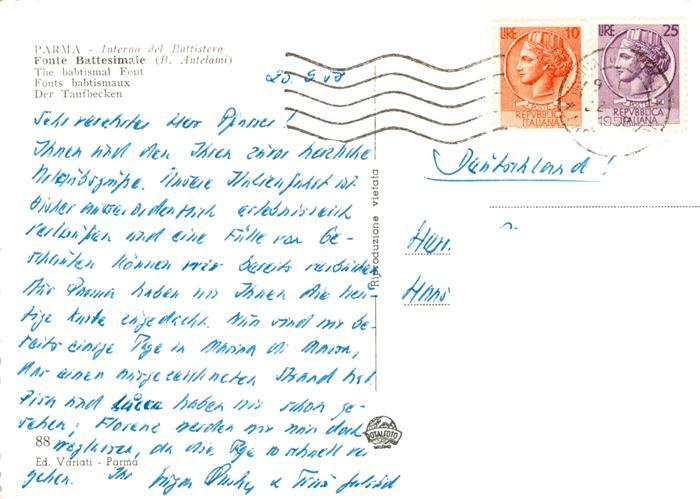 PARMA - Interno del Battistero
Fonte Battesimale (B. Antelami)
The babtismal Font
Fonts babtismaux
Der Taufbecken
LIRE 10
POSTE
REPVBBLICA
ITALIANA
LIRE 25
POSTE
REPVBBLICA
ITALIANA
Sehr verehrter Herr
Ihnen und den Ihren zuvor herzliche
Urlaubsgrüße. Unsere Italienfahrt ist
bisher außerordentlich erlebnisreich
verlaufen und eine Fülle von Ge-
können wir bereits verbuchen
Aus Parma haben wir Ihnen die heu-
tige Karte zugedacht. Nun sind wir be-
reits einige Tage in Marina di Massa,
das einen ausgezeichneten Strand hat
Pisa und Lucca haben wir schon ge-
sehen; Florenz werden wir nun doch
weglassen, da die Tage so schnell ver
gehen. Ihr
88
Ed. Variati - Parma
Riproduzione vietata
ROTALFOTO
MILANO
Deutschland!
Herrn
Hans